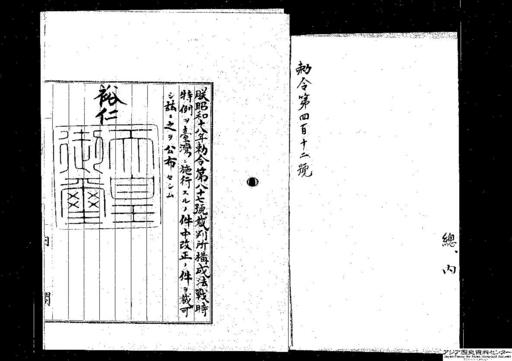 勅令第四百十二號
總、內
朕昭和十八年勅令第八十七號裁判所構成法戰時
特例ヲ臺灣ニ施行スルノ件中改正ノ件ヲ裁可
シ茲ニ之ヲ公布セシム
裕仁
天皇
御璽
內閣
アジア歴史資料センター